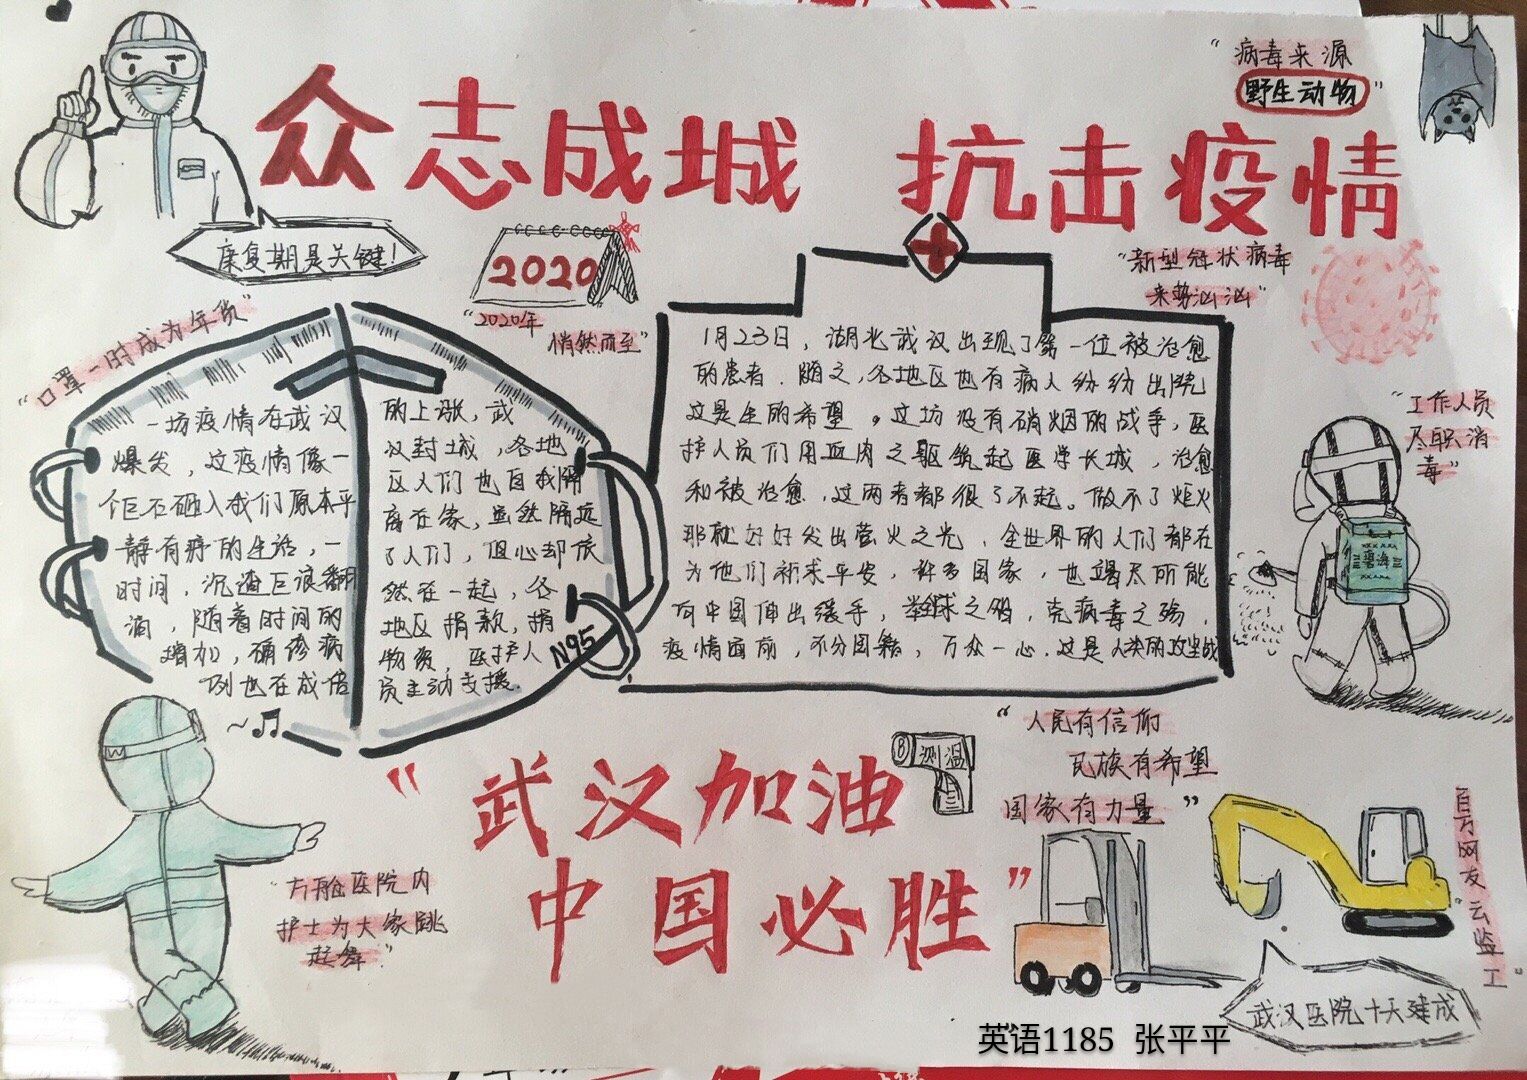 众志成城 抗击疫情
"病毒来源
野生动物"
康复期是关键!
2020
"2020年
悄然而至"
"新型冠状病毒
来势汹汹"
"口罩一时成为年货"
一场疫情在武汉
爆发，这疫情像一
个巨石砸入我们原本平
静有序的生活，一
时间，沉渣巨浪翻
涌，随着时间的
增加，确诊病
例也在成倍
的上涨，武
汉封城，各地
区人们也自我隔
离在家，虽然隔远
了人们，但心却依
然在一起，各
地区捐款，捐
物资，医护人
员主动支援.
N95
1月23日，湖北武汉出现了第一位被治愈
的患者．随之，各地区也有病人纷纷出院
这是生的希望。这场没有硝烟的战争，医
护人员们用血肉之躯筑起医学长城，治愈
和被治愈，这两者都很了不起。做不了炬火
那就好好发出萤火之光，全世界的人们都在
为他们祈求平安，许多国家，也竭尽所能
向中国伸出缓手，举球之，克病毒之殇，
疫情面前，不分国籍，万众一心，这是人类的攻坚战
"工作人员
尽职消
毒"
碧海
"武汉加油
中国必胜"
测温
"人民有信仰
民族有希望
国家有力量"
"方舱医院内
护士为大家跳
起舞."
百万网友"云监工"
武汉医院十天建成
英语1185 张平平